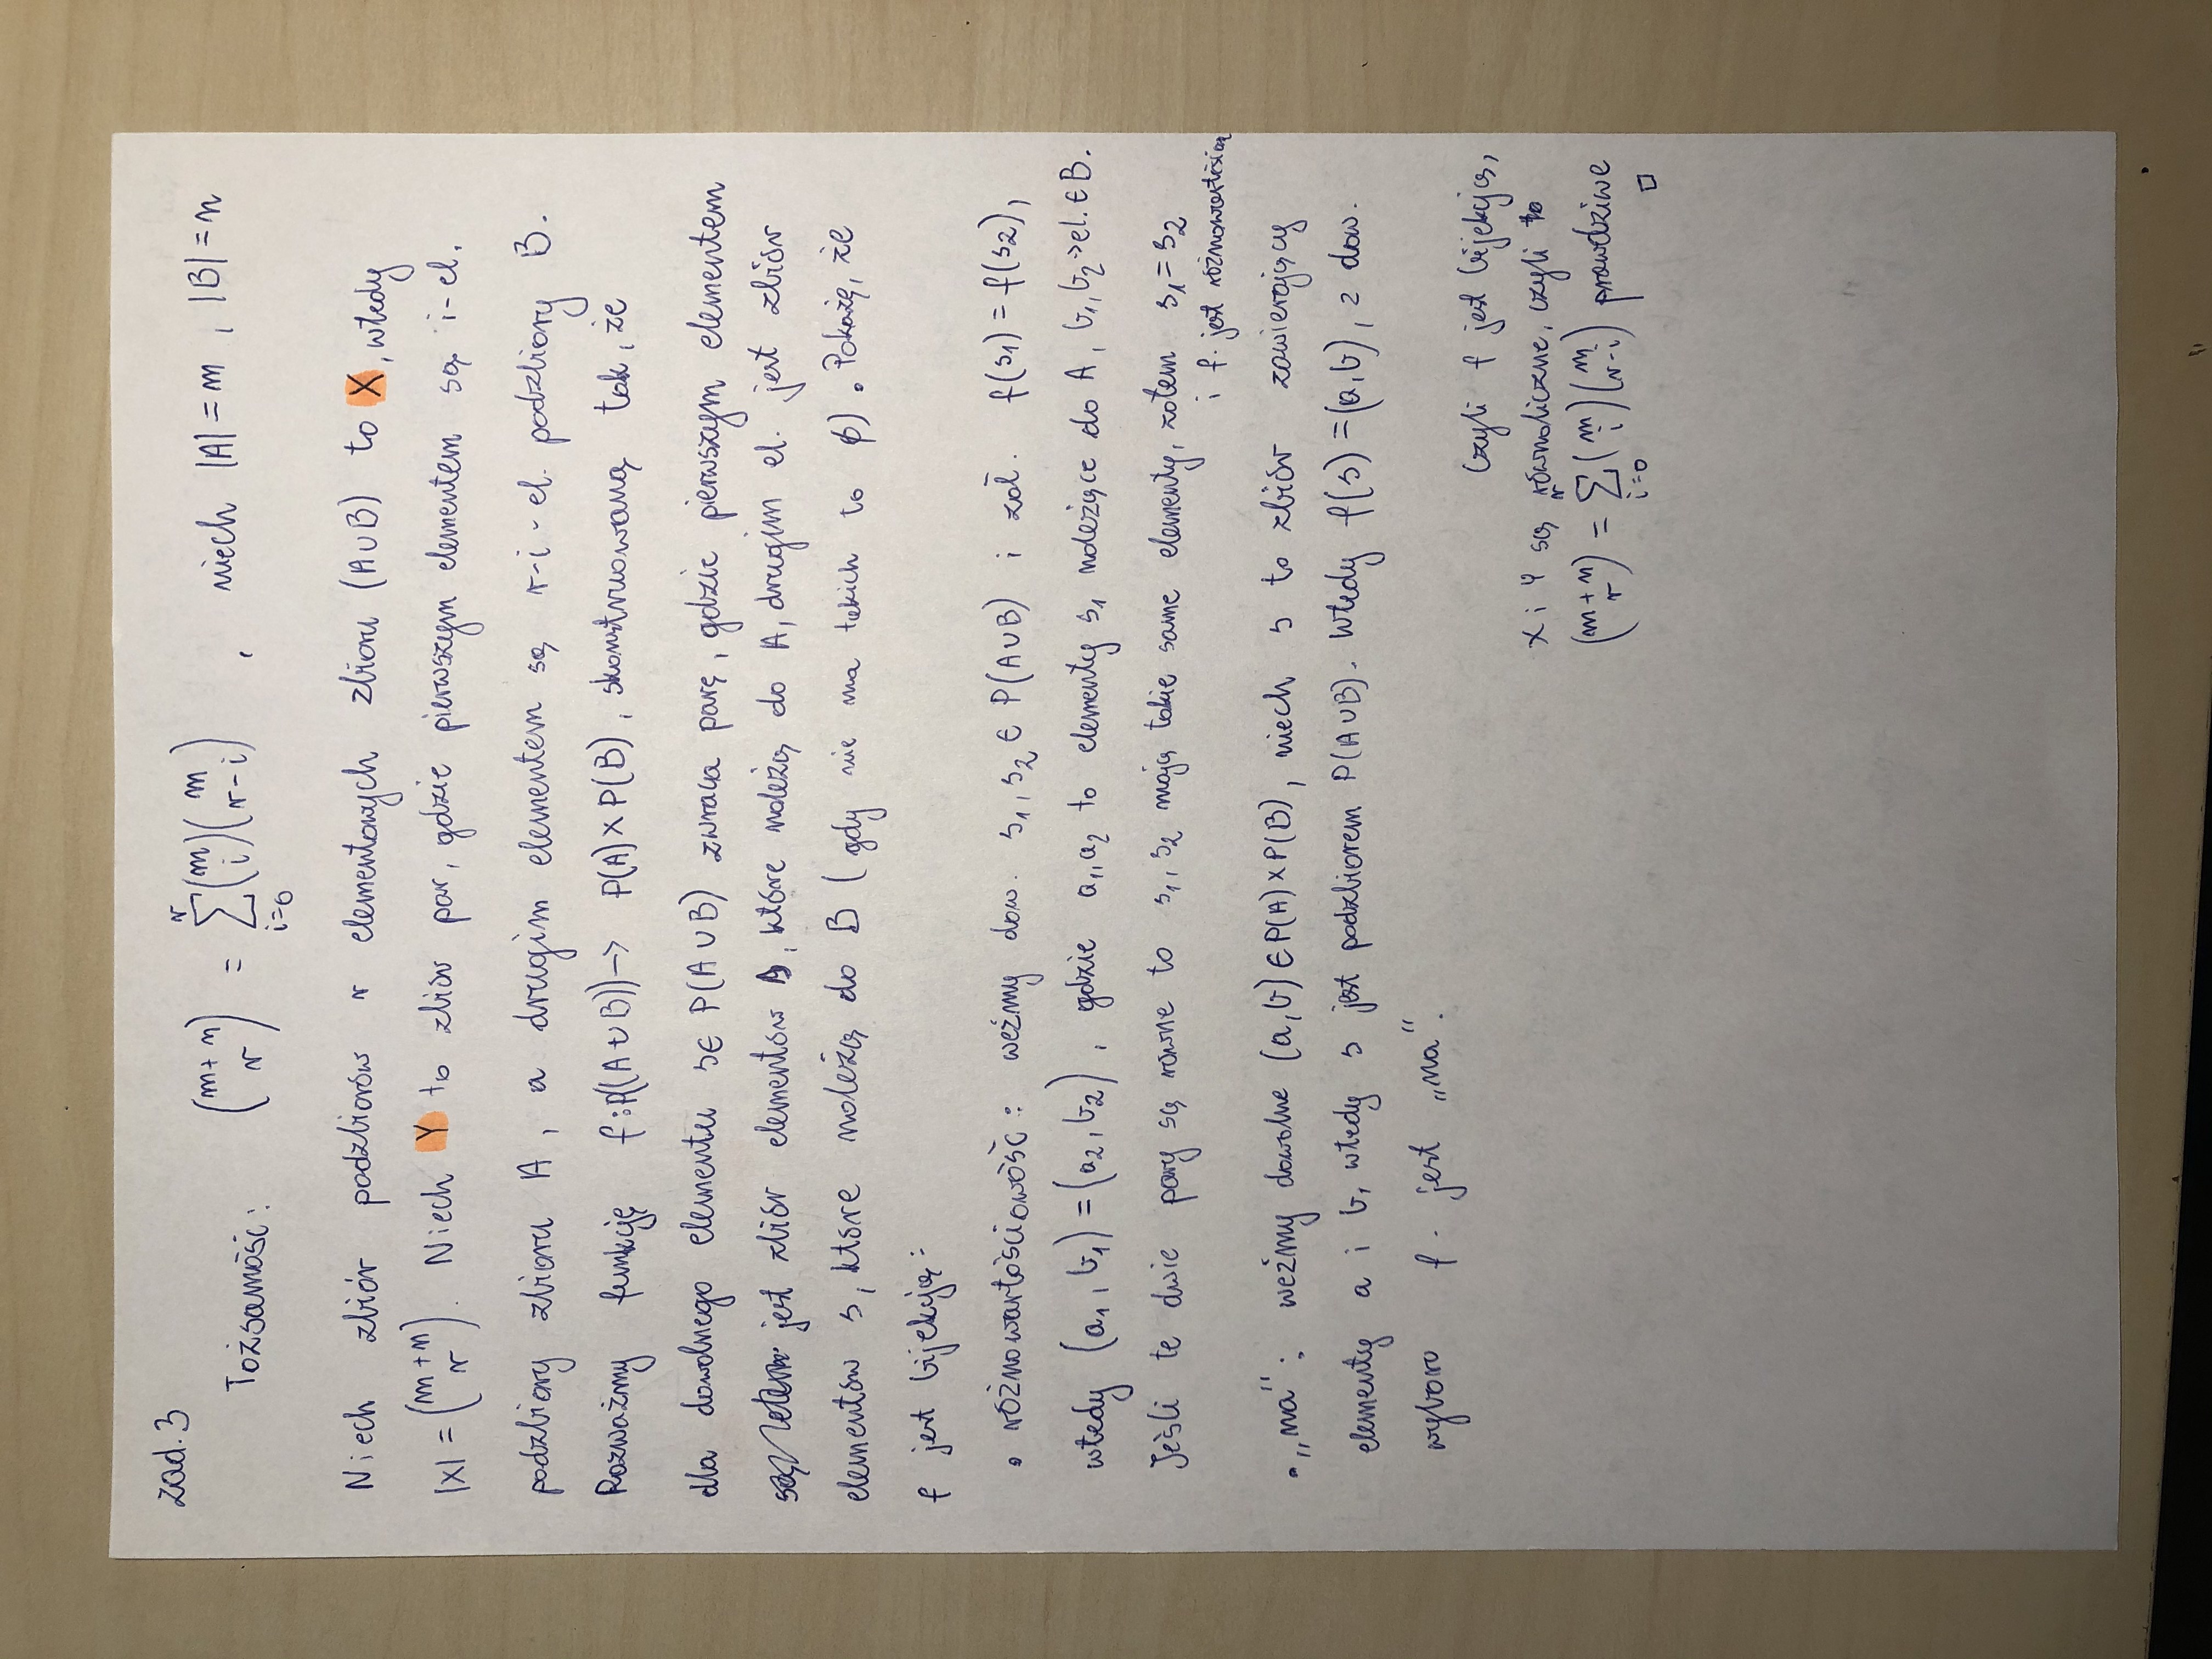 zad. 3
Tożsamość: $\binom{m+n}{r} = \sum_{i=0}^{r} \binom{m}{i} \binom{m}{r-i}$ , niech |A| = m , |B| = n
Niech zbiór podzbiorów r elementowych zbioru (A∪B) to X, wtedy
|X| = $\binom{m+n}{r}$. Niech Y to zbiór par, gdzie pierwszym elementem są i-el.
podzbiory zbioru A, a drugim elementem są r-i-el. podzbiory B.
Rozważmy funkcję f: P((A∪B)) → P(A)×P(B), skonstruowaną tak, że
dla dowolnego elementu s∈ P(A∪B) zwraca parę, gdzie pierwszym elementem
jest zbiór elementów s, które należą do A, drugim el. jest zbiór
elementów s, które należą do B (gdy nie ma takich to ∅). Pokażę, że
f jest bijekcją:
• różnowartościowość: weźmy dow. s₁, s₂ ∈ P(A∪B) i zał. f(s₁) = f(s₂),
wtedy (a₁, b₁) = (a₂, b₂), gdzie a₁, a₂ to elementy s₁ należące do A, b₁, b₂ → el. ∈ B.
Jeśli te dwie pary są równe to s₁, s₂ mają takie same elementy, zatem s₁ = s₂
i f. jest różnowartościową
• „na“: weźmy dowolne (a, b) ∈ P(A)×P(B), niech s to zbiór zawierający
elementy a i b, wtedy s jest podzbiorem P(A∪B). Wtedy f(s) = (a, b), z dow.
wyboru f. jest „na“.
Czyli f jest bijekcją,
X i Y są równoliczne, czyli to
$\binom{m+n}{r} = \sum_{i=0}^{r} \binom{m}{i} \binom{m}{r-i}$ prawdziwe
□